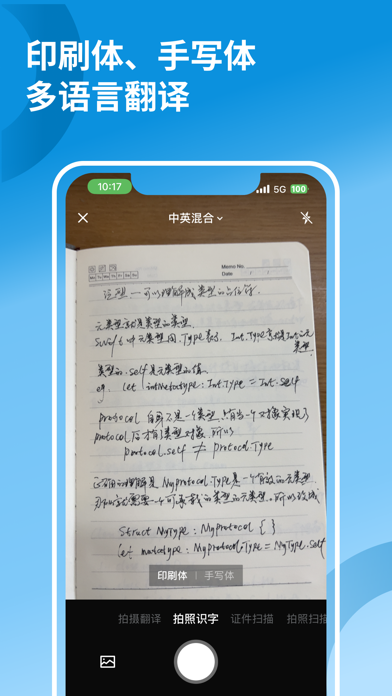 印刷体、手写体
多语言翻译
10:17
5G 100
中英混合
Memo No.
Date / /
Mo Tu We Th Fr Sa Su
泛型一可以理解成类型的占位符.
元类型就是类型的类型.
Swift中元类型用.Type表示, Int.Type就是Int的元
类型.
类型的.self是元类型的值.
eg. let intMetatype: Int.Type = Int.self
protocol 自身不是一个类型,只有当一个对象实现了
protocol后才有类型对象.所以
portocol.self ≠ protocol.Type
MyProtocol.Type是一个有效的元类型.
一个可承载的类型的元类型.所以改成
Struct MyType: MyProtocol { }
let metatype: MyProtocol.Type = MyType.self
印刷体 手写体
拍摄翻译 拍照识字 证件扫描 拍照扫描